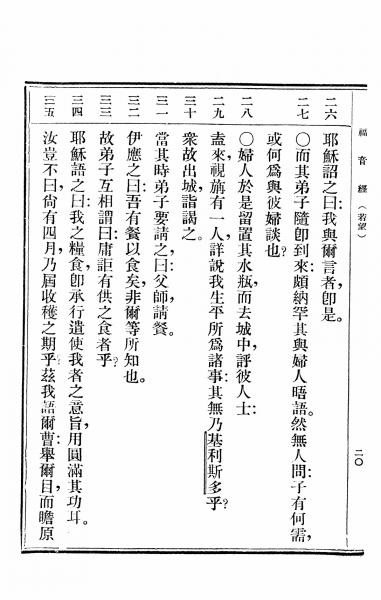 福音經（若望）
二〇
二六 耶穌詔之曰：我與爾言者，卽是。
二七 〇而其弟子隨卽到來；頗納罕其與婦人晤語。然無人問：子有何需，
或何爲與彼婦談也？
二八 〇婦人於是留置其水瓶，而去城中，評彼人士：
二九 盍來，視旃有一人，詳說我生平所爲諸事；其無乃基利斯多乎？
三十 衆故出城，詣謁之。
三一 當其時弟子要請之曰：父師，請餐。
三二 伊應之曰：吾有餐以食矣，非爾等所知也。
三三 故弟子互相謂曰：庸詎有供之食者乎？
三四 耶穌語之曰：我之糧食，卽承行遣使我者之意旨，用圓滿其功耳。
三五 汝豈不曰：尙有四月，乃屆收穫之期乎？茲我語爾曹：舉爾目，而瞻原